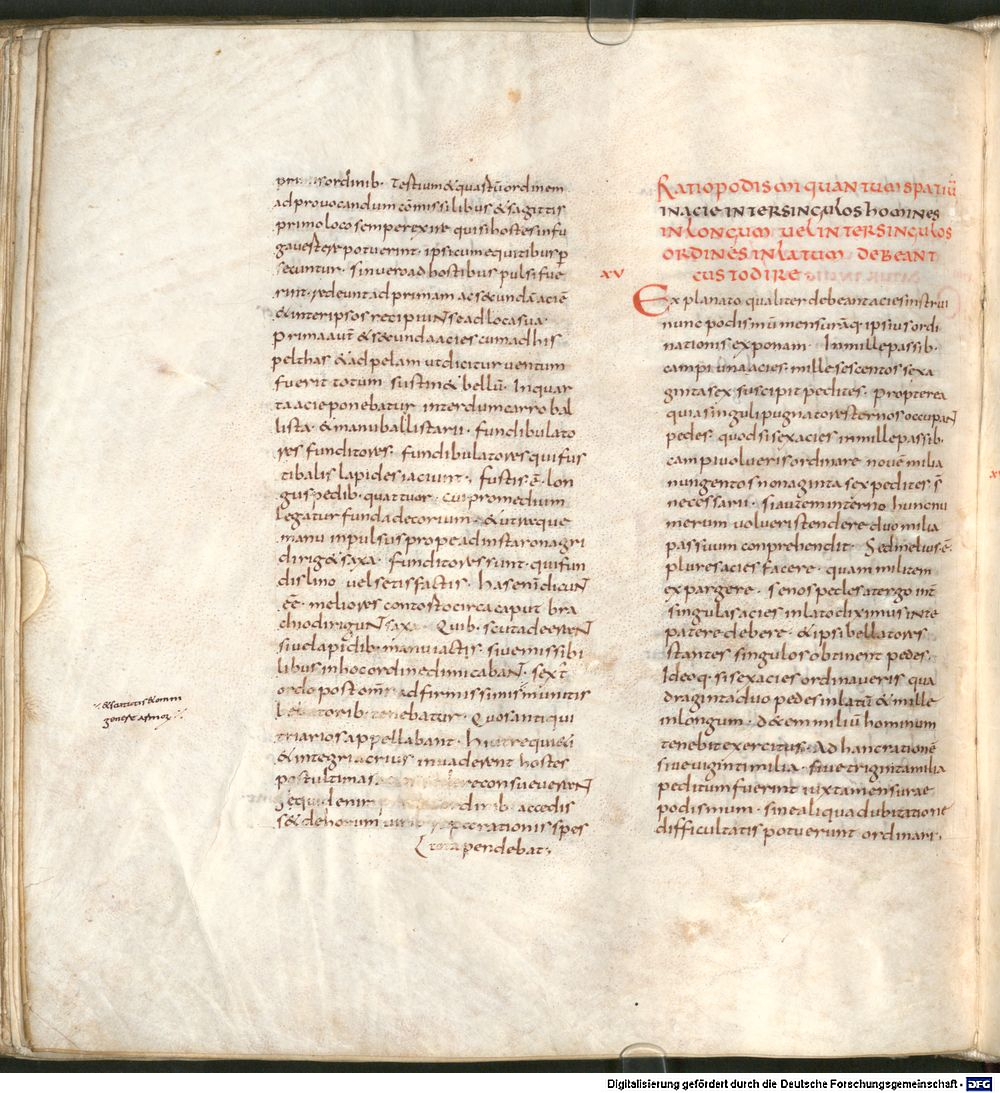 ordinib· Testium & quastū ordinem
ad provocandum cōmissilibus & sagittis
primo loco semper exire qui si hostes in fu
gavestere potuerint· ipsi cum equitibus p̄
secuntur· sin vero ad hostibus pulsi fue
rint· redeunt ad primam ac secundā aciē
& inter ipsos recipiuNt se ad loca sua·
Prima aut̄ & secunda acies cum ad his
pelthas & ad pelam ut dicitur ventum
fuerit totum sustin& bellū· In quar
ta acie ponebatur interdum carro bal
lista· & manuballistarii· fundibulato
res funditores· fundibulatores qui fus
tibalis lapides iaciunt· fustis ē· lon
gus pedib· quattuor· cui pro medium
legatur funda de corium· & utraque
manu inpulsus prope ad instar onagri
dirig& saxa· funditores sunt· qui fun
dis lino vel setis factis· has enī dicuNt
ēē· meliores contosto circa caput bra
chio diriguNt saxa· Quib· scuta deeraNt
sive lapidib· manu iactis· sive missibi
libus in hoc ordine dimicabaNt· sext̄
ordo post om̄s ad firmissimis munitis
bellatorib· tenebatur· Quos antiqui
triarios appellabant· Hi ut requieti
& integri acrius invaderent hostes
post ultimas consueveraNt
sequid enim ordinib· accedis
s& de horum rationis spes
tota pendebat·
& scutatis & omni
genere armor
XV
Ratio podismi quantum spatiū
in acie inter singulos homines
in longum vel inter singulos
ordines in latum debeant
custodire
Explanato qualiter debeant acies instrui
nunc podismū mensurāq· ipsius ordi
nationis exponam· In mille passib·
campi una acies· mille sescentos sexa
ginta sex suscipit pedites· Propterea
quia singuli pugnatores ternos occupaNt
pedes· quod si sex acies in mille passib·
campi volueris ordinare novē milia
nungentos nonaginta sex pedites s̄
necessarii· si autem in terno hunc nu
merum volueris tendere duo milia
passuum conprehendit· Sed melius ē·
plures acies facere· quam militem
expargere· Senos pedes a tergo int̄
singulas acies in lato diximus inte
patere debere· & ipsi bellatores
stantes singulos obtinent pedes·
Ideoq· si sex acies ordinaveris qua
draginta duo pedes in latū & mille
in longum· decem miliū hominum
tenebit exercitus· Ad hanc rationē
sive viginti milia· sive triginta milia
peditum fuerint iuxta mensurae
podismum· sine aliqua dubitatione
difficultatis poterunt ordinari·
Digitalisierung gefördert durch die Deutsche Forschungsgemeinschaft - DFG